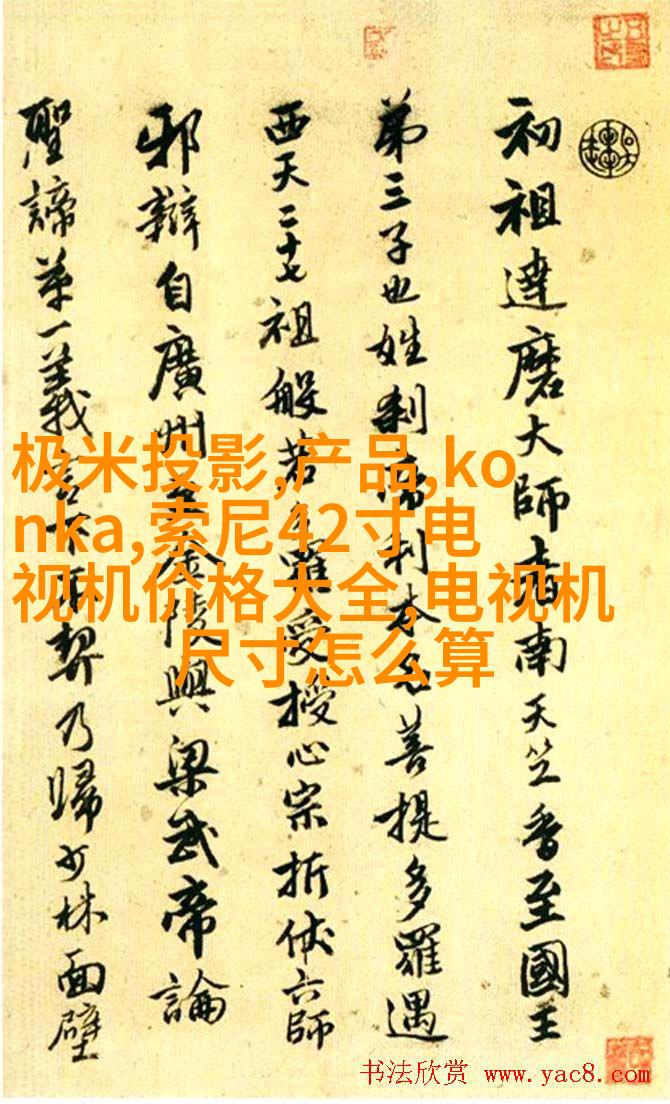 初祖達磨大師者南天竺香至國王
第三子也姓刹帝利本名菩提多羅遇
西天二十七祖般若多羅受授心宗折伏六師
邪辯自廣州至金陵與梁武帝論
聖諦第一義契乃歸少林面壁
极米投影,产品,ko
nka,索尼42寸电
视机价格大全,电视机
尺寸怎么算
书法欣赏 www.yac8.com